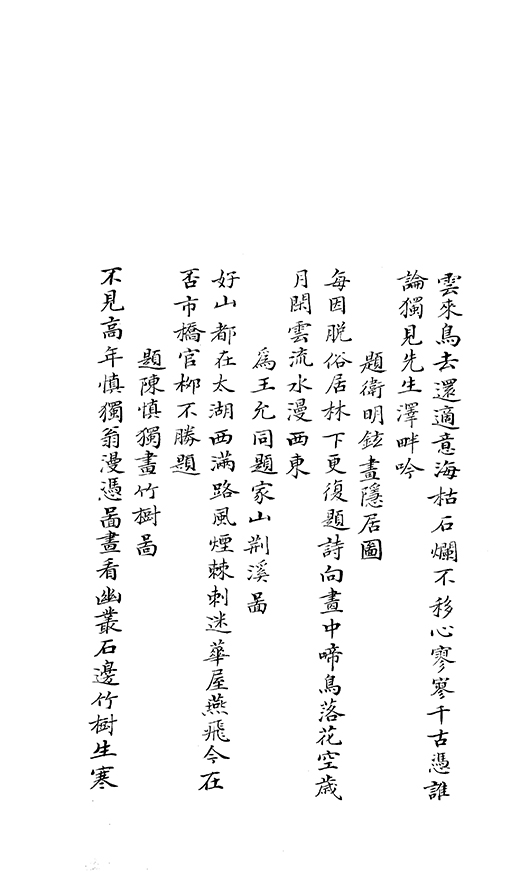 雲來鳥去還適意海枯石爛不移心寥寥千古憑誰
論獨見先生澤畔吟
題衛明鉉畫隱居圖
每因脫俗居林下更復題詩向畫中啼鳥落花空歲
月閑雲流水漫西東
爲王允同題家山荆溪啚
好山都在太湖西滿路風煙棘刺迷華屋燕飛今在
否市橋官柳不勝題
題陳慎獨畫竹樹啚
不見高年慎獨翁漫憑啚畫看幽叢石邊竹樹生寒